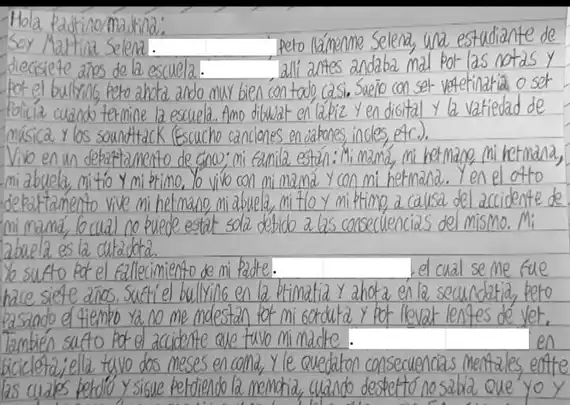 Hola Padrino/madrina:
Soy Martina Selena . pero llámenme Selena, una estudiante de
diecisiete años de la escuela . allí antes andaba mal por las notas y
por el bullying, pero ahora ando muy bien con todo casi. Sueño con ser veterinaria o ser
policía cuando termine la escuela. Amo dibujar en lápiz y en digital y la variedad de
música y los soundtrack (Escucho canciones en japones, ingles, etc.).
Vivo en un departamento de cinco; mi familia están: Mi mamá, mi hermano, mi hermana,
mi abuela, mi tío y mi primo. Yo vivo con mi mamá y con mi hermana. Y en el otro
departamento vive mi hermano, mi abuela, mi tío y mi primo a causa del accidente de
mi mamá, lo cual no puede estar sola debido a las consecuencias del mismo. Mi
abuela es la curadora.
Yo sufro por el fallecimiento de mi padre . , el cual se me fue
hace siete años. Sufrí el bullying en la primaria y ahora en la secundaria, pero
pasando el tiempo ya no me molestan por mi gordura y por llevar lentes de ver.
También sufro por el accidente que tuvo mi madre . en
bicicleta; ella tuvo dos meses en coma, y le quedaron consecuencias mentales, entre
las cuales perdió y sigue perdiendo la memoria, cuando despertó no sabía que yo y